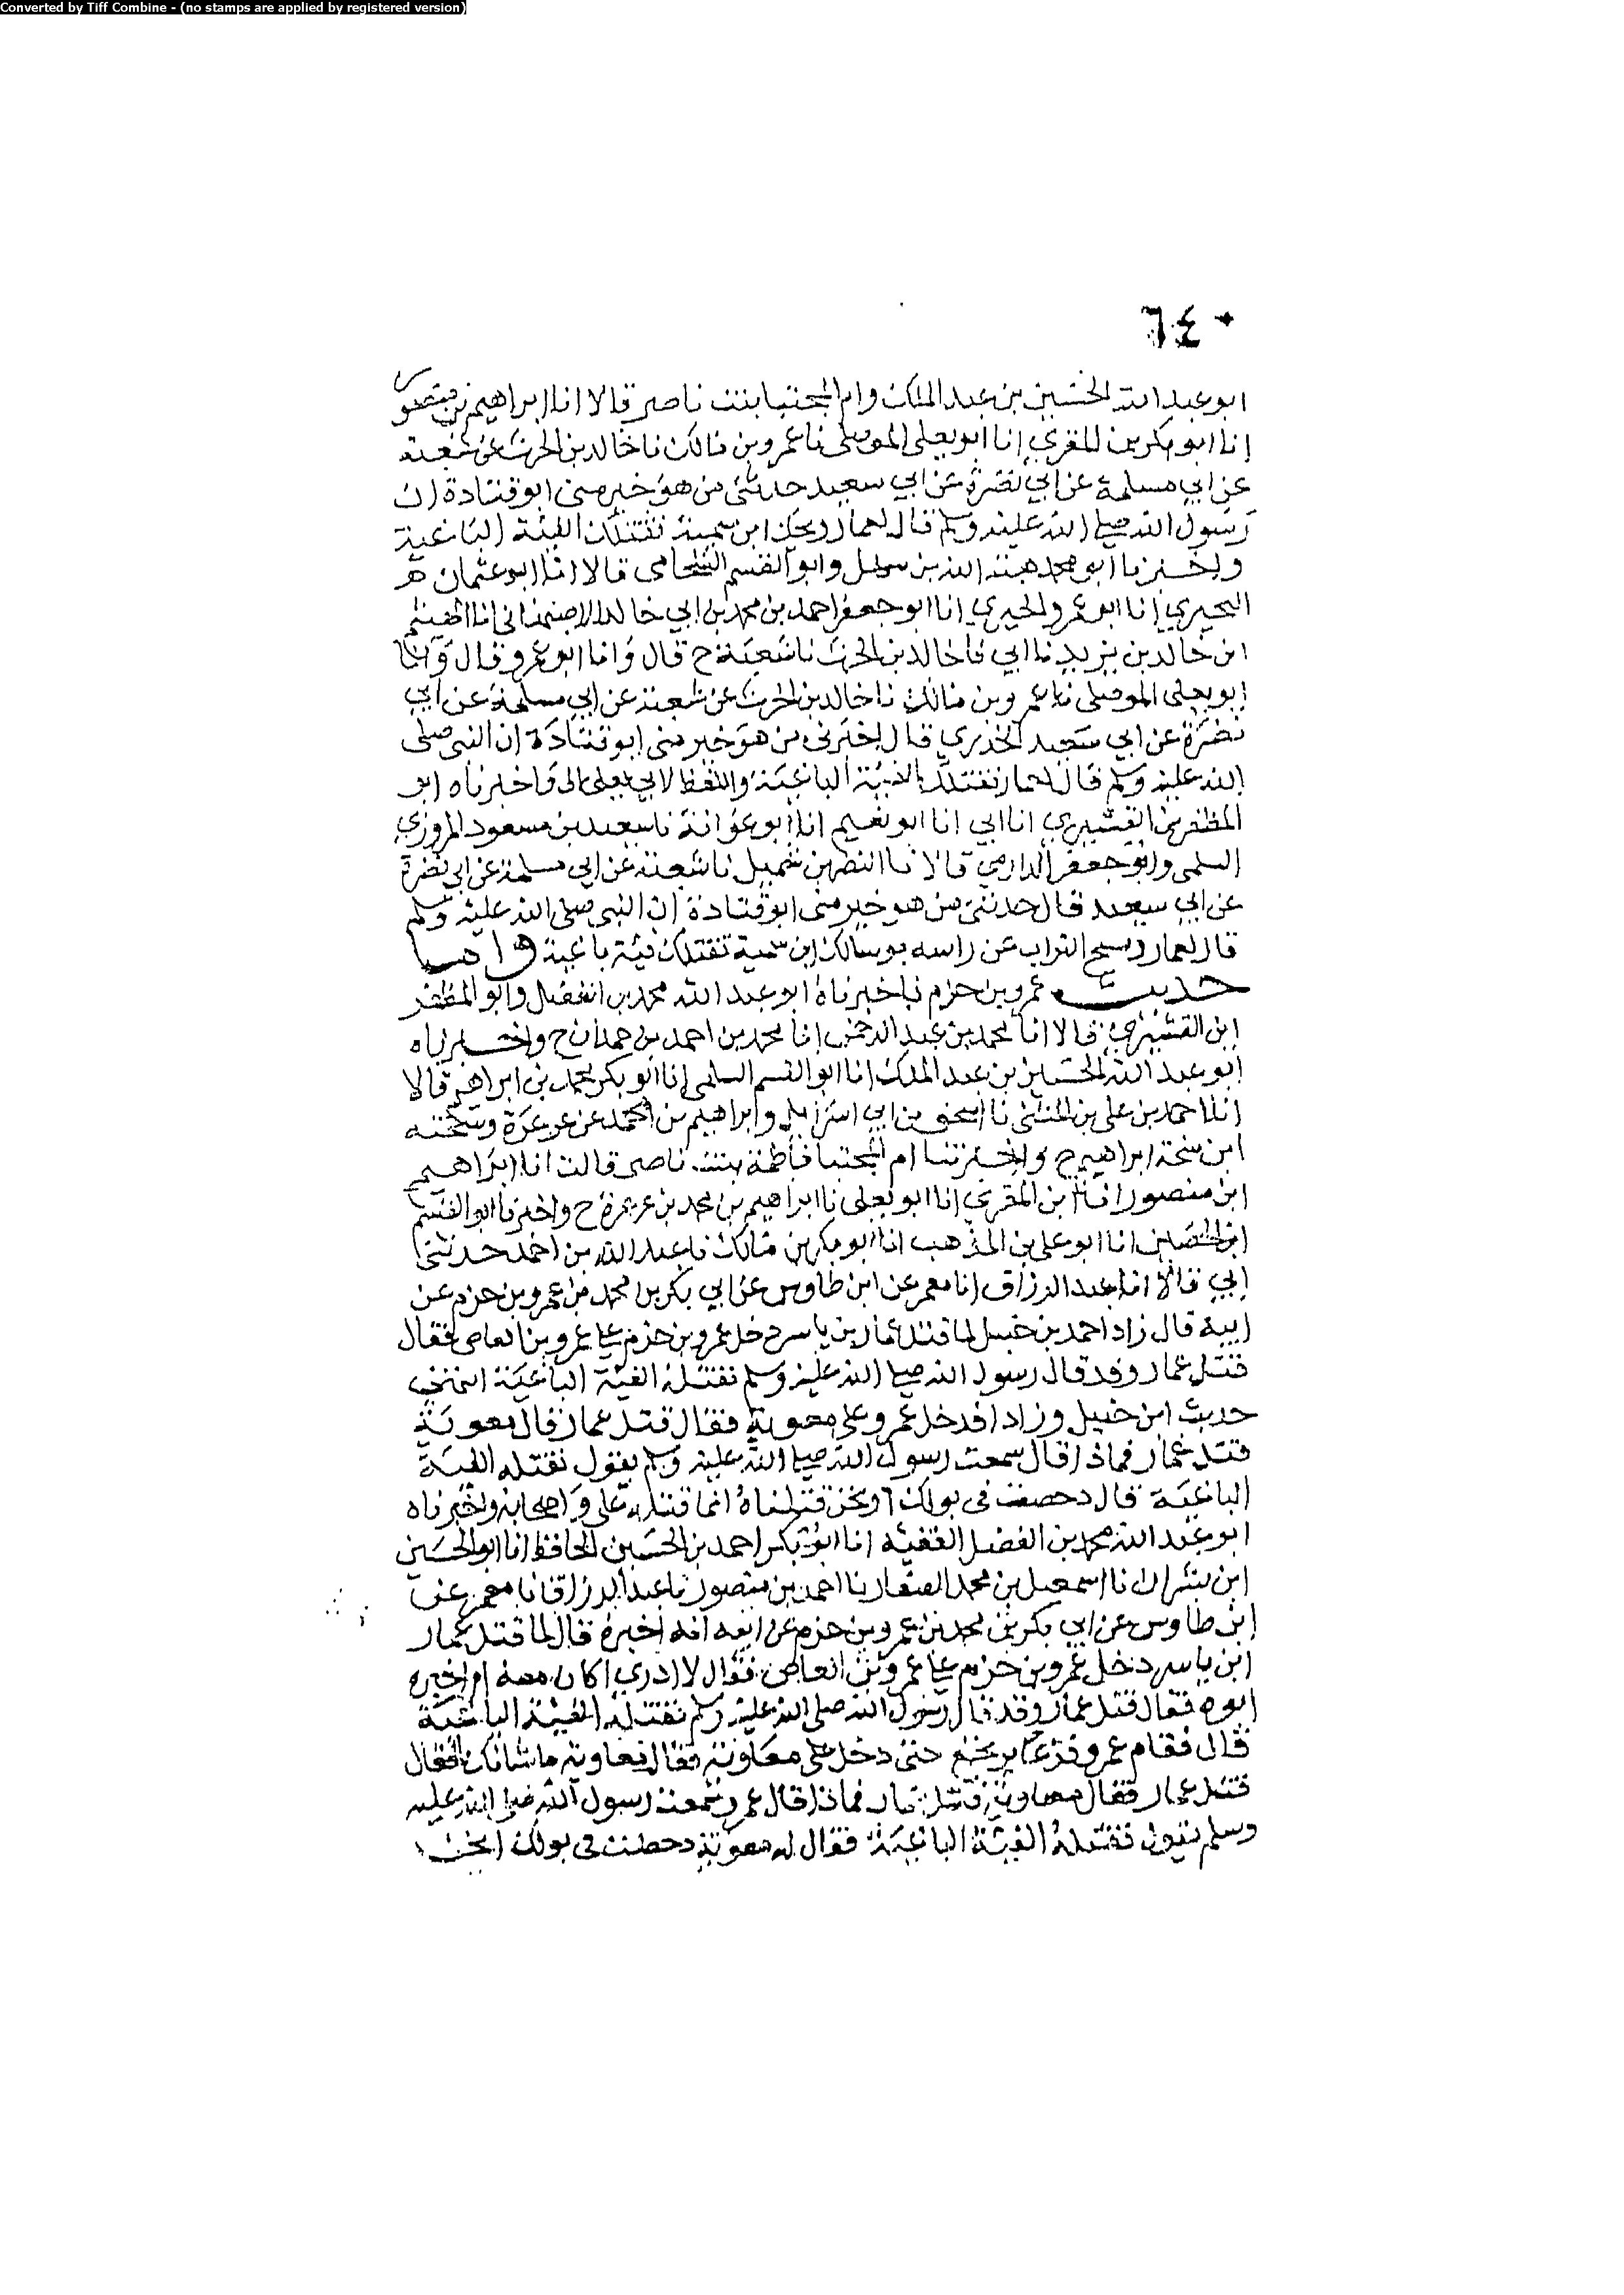 Converted by Tiff Combine - (no stamps are applied by registered version)
٦٤٠
ابو عبد الله الحسين بن عبد الملك وام المجتبا بنت ناصر قالا انا ابراهيم بن منصور
انا ابو بكر بن المقري انا ابو يعلى الموصلى نا عمرو بن مالك نا خالد بن الحرث عن شعبة
عن ابي مسلمة عن ابي نضرة عن ابي سعيد حدثنى من هو خير منى ابو قتادة ان
رسول الله صلى الله عليه وسلم قال لعمار ويحك ابن سمية تقتلك الفئة الباغية
واخبرنا ابو محمد هبة الله بن سهل وابو القسم الشحامى قالا انا ابو عثمان
البحيري انا ابو عمرو الحيري انا ابو جعفر احمد بن محمد بن ابي خالد الاصبهانى انا
ابن خالد بن يزيد نا ابي نا خالد بن الحرث نا شعبة ح قال وانا ابو عمرو قال وانا
ابو يعلى الموصلى نا عمرو بن مالك نا خالد بن الحرث عن شعبة عن ابي مسلمة عن ابي
نضرة عن ابي سعيد الخدري قال اخبرنى من هو خير منى ابو قتادة ان النبى صلى
الله عليه وسلم قال لعمار تقتلك الفئة الباغية واللفظ لابي يعلى واخبرناه ابو
المظفر بن القشيري انا ابي انا ابو نعيم انا ابو عوانة نا سعيد بن مسعود المروزي
السلمى وابو جعفر الدارمي قالا نا النضر بن شميل نا شعبة عن ابي مسلمة عن ابي نضرة
عن ابي سعيد قال حدثنى من هو خير منى ابو قتادة ان النبى صلى الله عليه وسلم
قال لعمار ومسح التراب عن راسه بوسا لك ابن سمية تقتلك فئة باغية واما
حديث عمرو بن حزم فاخبرناه ابو عبد الله محمد بن الفضل وابو المظفر
ابن القشيري قالا انا محمد بن عبد الرحمن انا محمد بن احمد بن حمدان ح واخبرناه
ابو عبد الله الحسين بن عبد الملك انا ابو القسم السلمى انا ابو بكر محمد بن ابراهيم قالا
انا احمد بن على بن المثنى نا اسحق بن ابي اسرائيل وابراهيم بن محمد بن عرعرة ونسخته
ابن نسخة ابراهيم ح واخبرتنا ام المجتبا فاطمة بنت ناصر قالت انا ابراهيم
ابن منصور انا ابن المقري انا ابو يعلى نا ابراهيم بن محمد بن عرعرة ح واخبرنا ابو القسم
ابن الحصين انا ابو على بن المذهب انا ابو بكر بن مالك نا عبد الله بن احمد حدثنى
ابي قالا انا عبد الرزاق انا معمر عن ابن طاوس عن ابي بكر بن محمد بن عمرو بن حزم عن
ابيه قال زاد احمد بن حنبل لما قتل عمار بن ياسر دخل عمرو بن حزم على عمرو بن العاص فقال
قتل عمار وقد قال رسول الله صلى الله عليه وسلم تقتله الفئة الباغية انتهى
حديث ابن حنبل وزاد فدخل عمرو على معوية فقال قتل عمار قال معوية
قتل عمار فماذا قال سمعت رسول الله صلى الله عليه وسلم يقول تقتله الفئة
الباغية قال دحضت فى بولك اونحن قتلناه انما قتله على واصحابه واخبرناه
ابو عبد الله محمد بن الفضل الفقيه انا ابو بكر احمد بن الحسين الحافظ انا ابو الحسين
ابن بشران نا اسمعيل بن محمد الصفار نا احمد بن منصور نا عبد الرزاق نا معمر عن
ابن طاوس عن ابي بكر بن محمد بن عمرو بن حزم عن ابيه انه اخبره قال لما قتل عمار
ابن ياسر دخل عمرو بن حزم على عمرو بن العاص فقال لا ادري اكان معه ام اخبره
ابوه فقال قتل عمار وقد قال رسول الله صلى الله عليه وسلم تقتله الفئة الباغية
قال فقام عمرو فزعا يرتجع حتى دخل على معاوية فقال معاوية ما شانك فقال
قتل عمار فقال معاوية قتل عمار فماذا قال عمرو سمعت رسول الله صلى الله عليه
وسلم يقول تقتله الفئة الباغية فقال له معوية دحضت فى بولك انحن